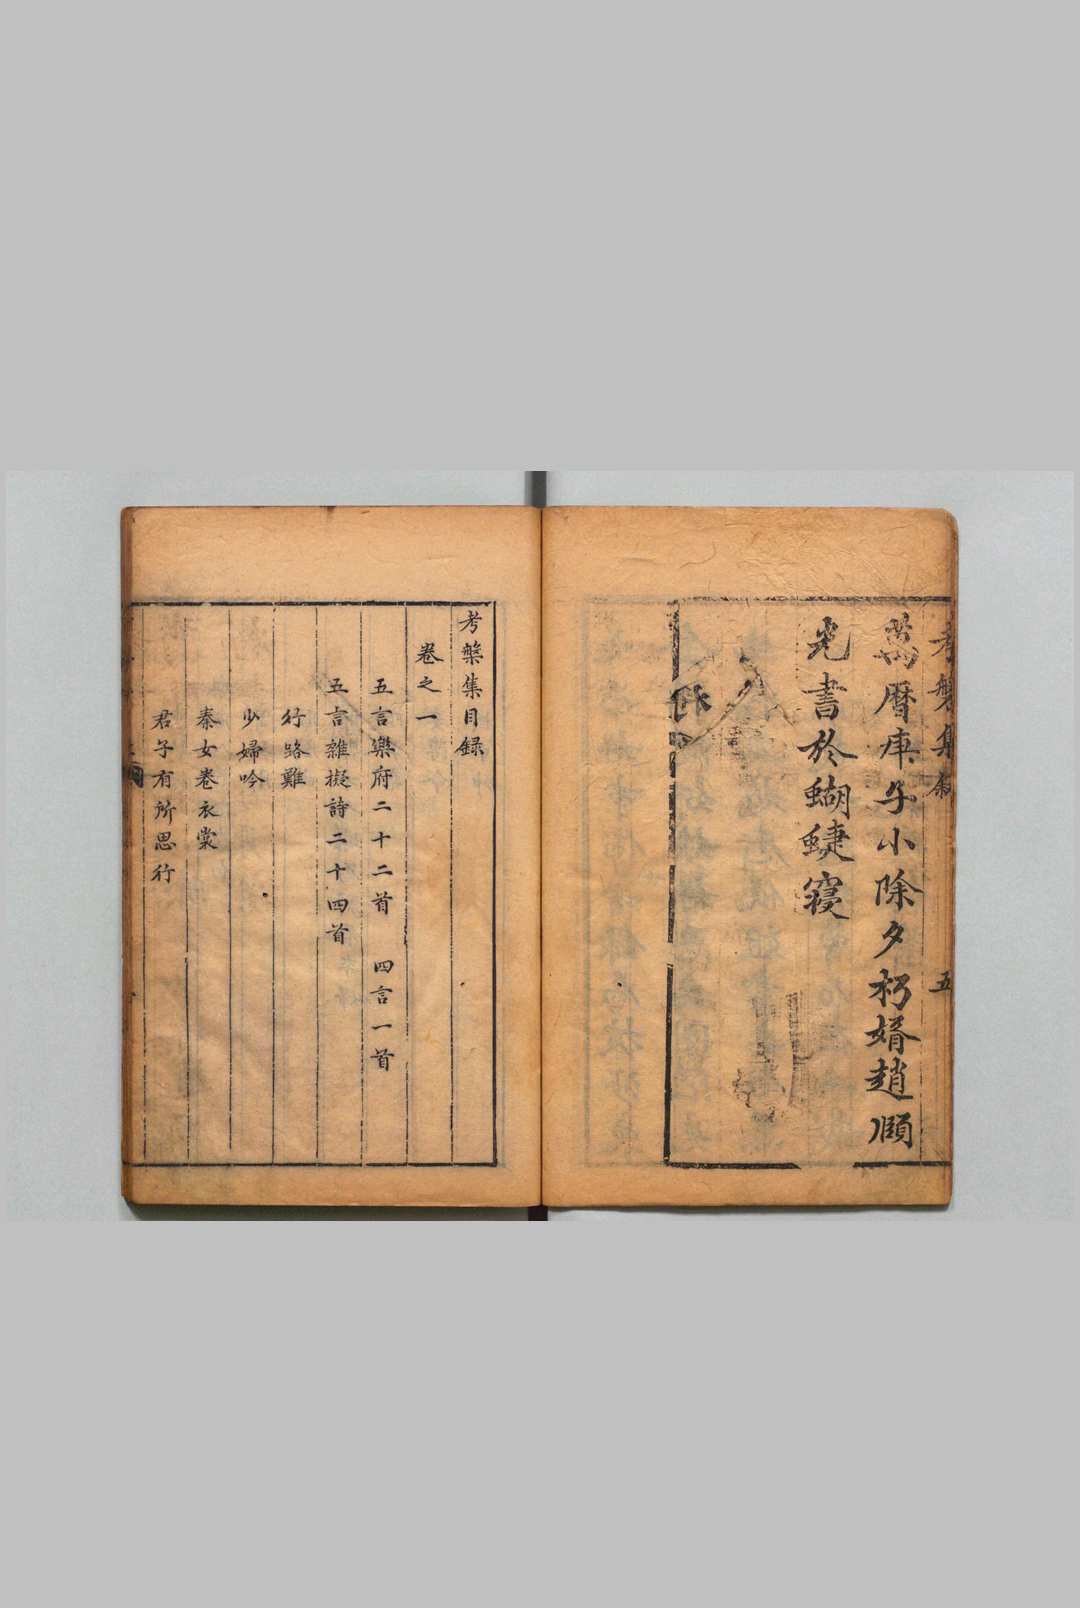 考槃集敘
五
萬曆庚子小除夕朽婿趙頤
光書於蝴蜨寢
考槃集目録
卷之一
五言樂府二十二首 四言一首
五言雜擬詩二十四首
行路難
少婦吟
秦女卷衣裳
君子有所思行